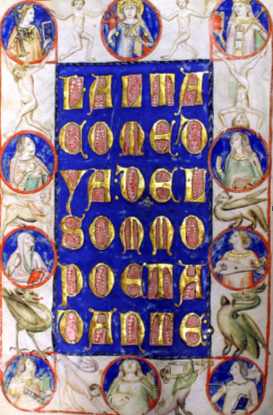 COMED
YA.DEL
SOMMO
POETA
DANTE: